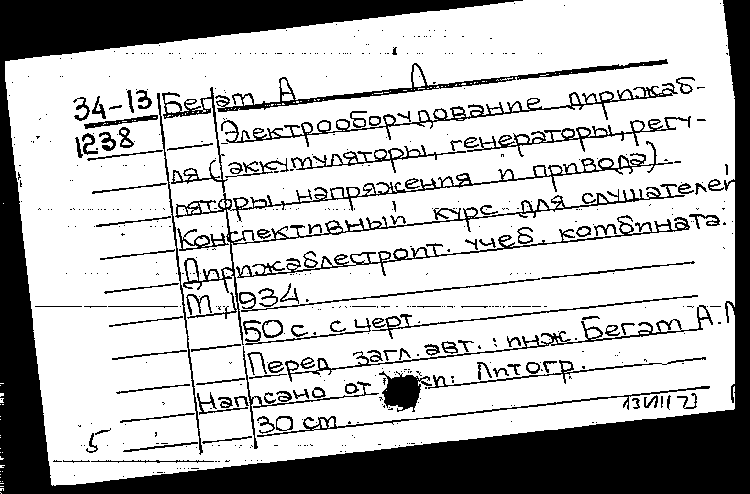 34-13 Бегам, А Л.
1238 Электрооборудование дирижаб-
ля (аккумуляторы, генераторы, регу-
ляторы, напряжения и привода).
Конспективный курс для слушателей
Дирижаблестроит. учеб. комбината.
М., 1934.
50 с. с черт.
Перед загл. авт.: инж. Бегам А.Л
Написано от Литогр.
30 cm.
5